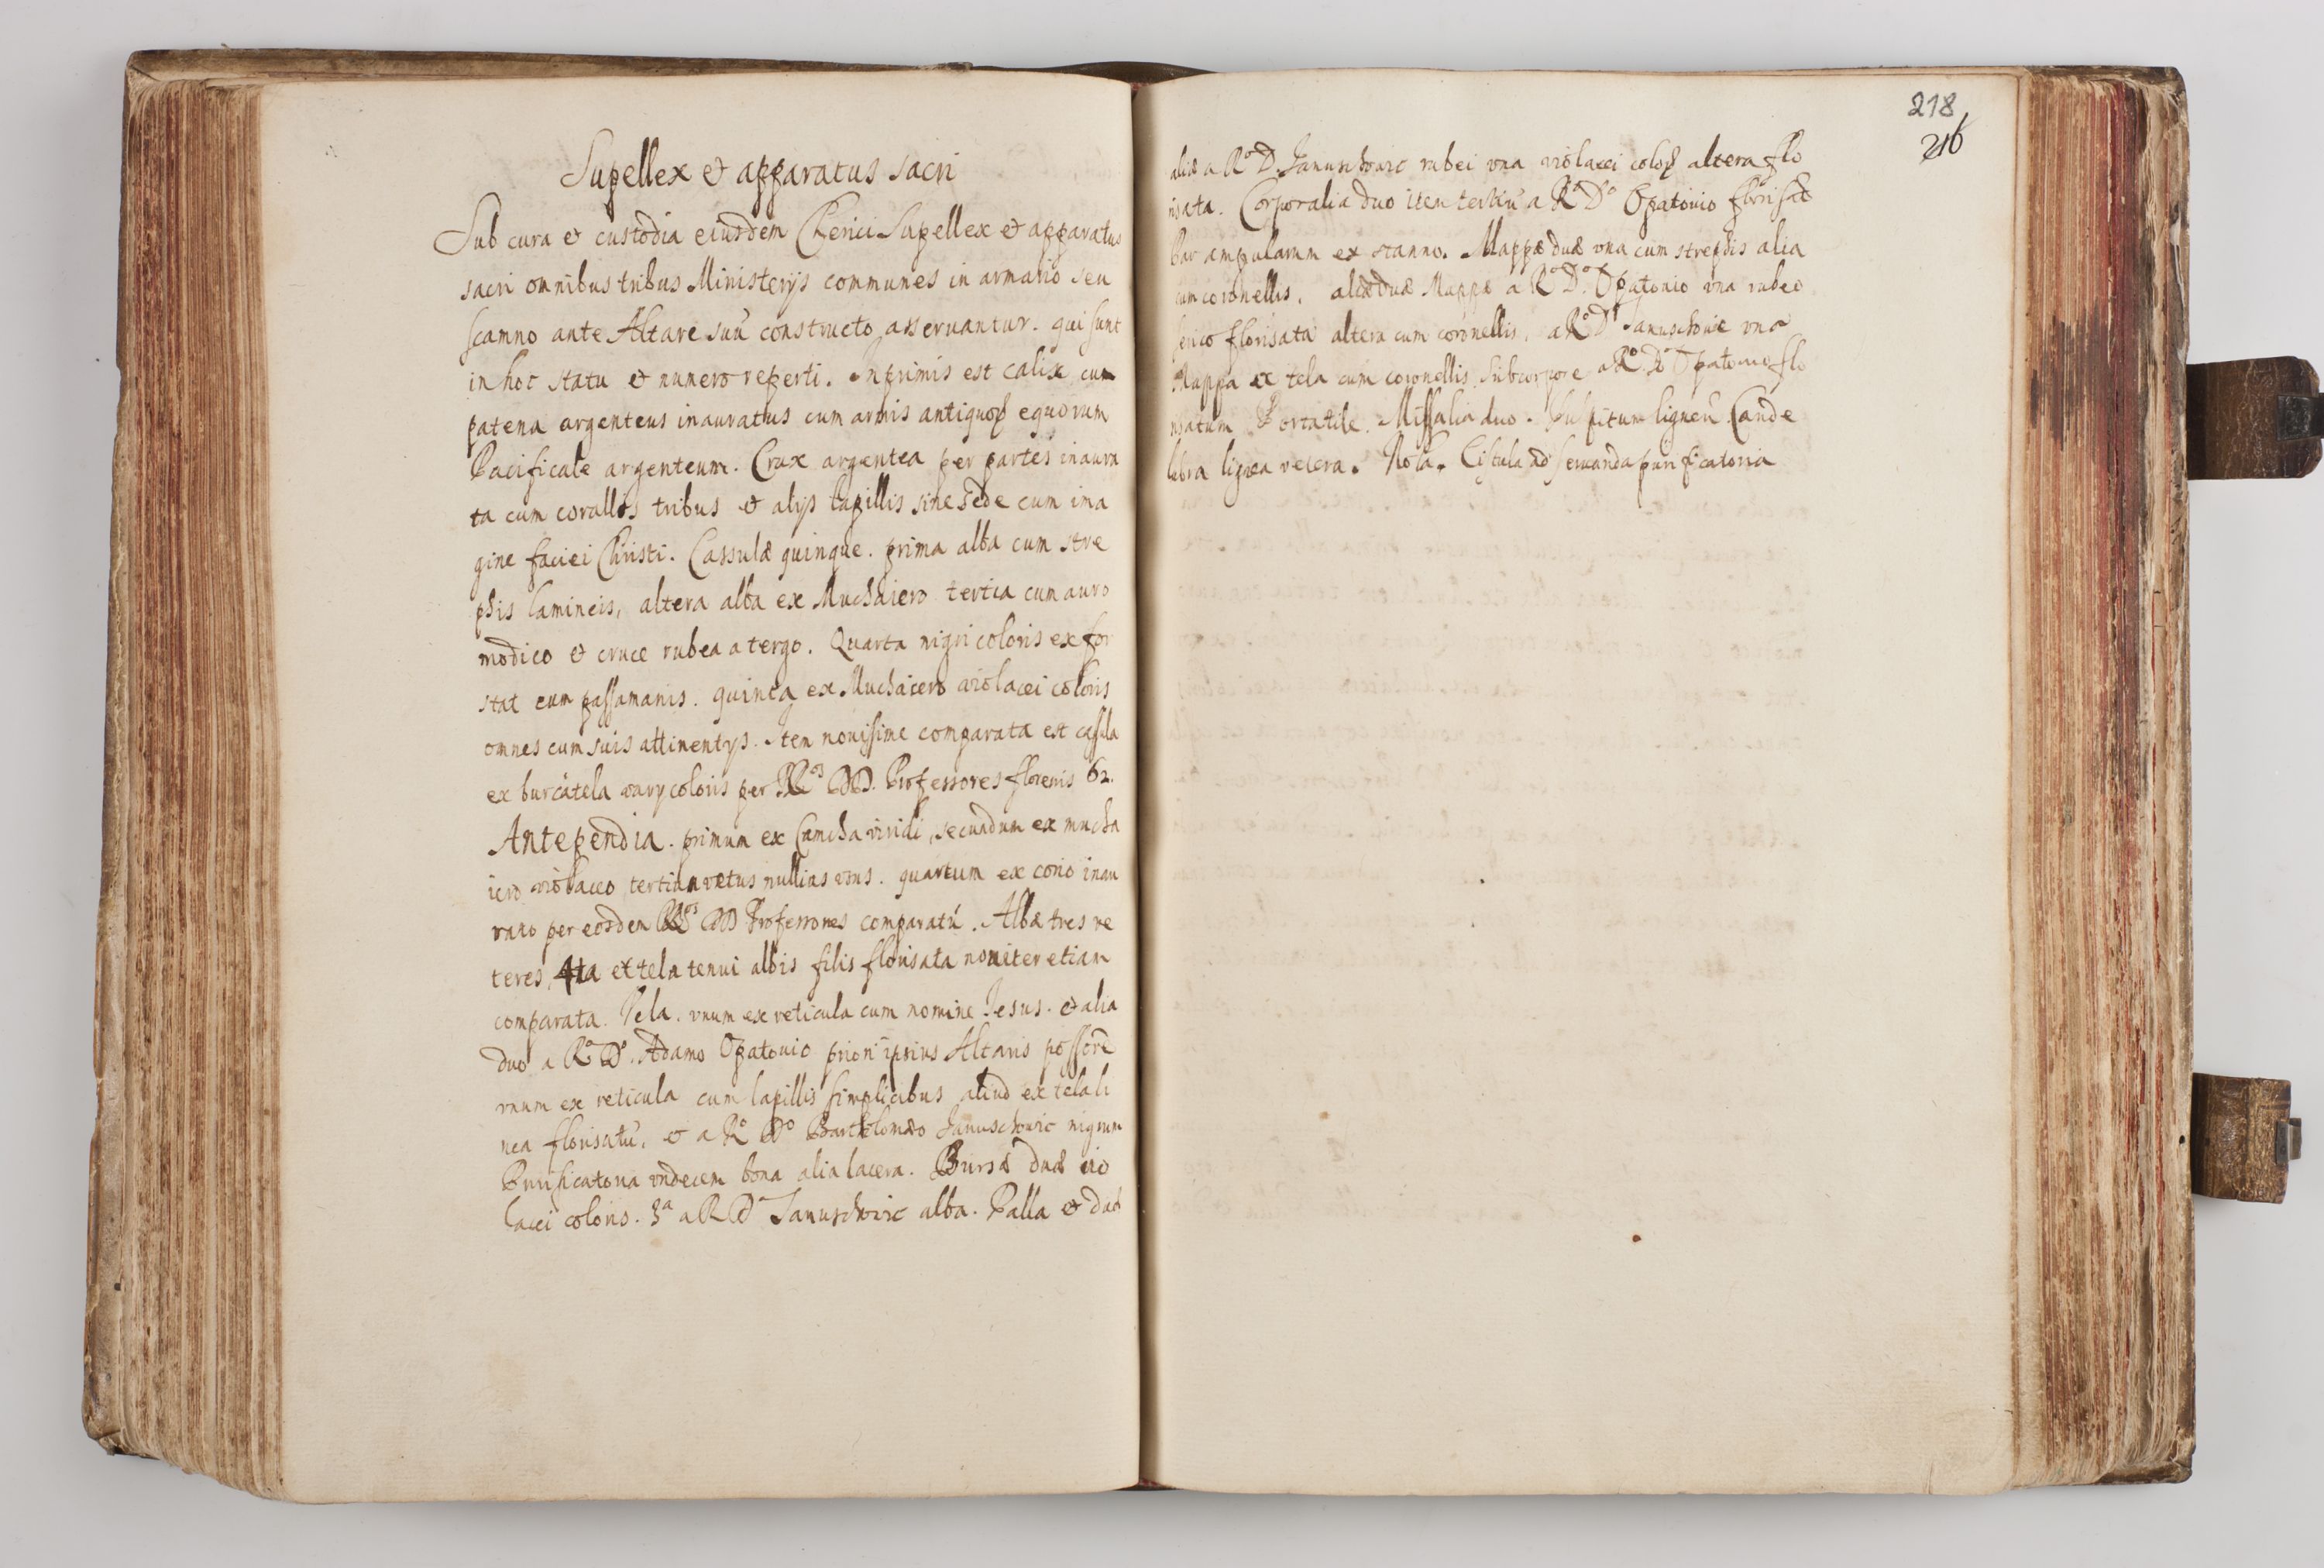 Supellex et apparatus sacri
Sub cura et custodia eiusdem Clerici Supellex et apparatus
sacri omnibus tribus Ministerijs communes in armario seu
scamno ante Altare suū constructo asseruantur. qui sunt
in hoc statu et numero reperti. Inprimis est calix cum
patena argenteus inauratus cum armis antiquoꝝ equorum
Pacificale argenteum. Crux argentea per partes inaura
ta cum corallis tribus et alijs lapillis sine sede cum ima
gine faciei Christi. Cassulæ quinque. prima alba cum stre
phis lamineis, altera alba ex Muchaiero tertia cum auro
modico et cruce rubea a tergo. Quarta nigri coloris ex for
stat cum passamanis. quinta ex Muchaiero violacei coloris
omnes cum suis attinentijs. Item nouissime comparata est casula
ex burcatela varij coloris per RR.os DD. Professores florenis 62.
Antependia. primum ex Camcha viridi, secundum ex mucha
iero violaceo tertium vetus nullius vsus. quartum ex corio inau
rato per eosdem RR.os DD Professores comparatū. Albæ tres ve
teres, 4ta ex tela tenui albis filis florisata nouiter etiam
comparata. Vela. vnum ex reticula cum nomine Iesus. et alia
duo a R.o D.o Adamo Opatouio priori ipsius Altaris possore
vnum ex reticula cum lapillis simplicibus aliud ex tela li
nea florisatū, et a R.o D.o Bartholomæo Januschouic nigrum
Purificatoria vndecem bona alia lacera. Bursæ duæ vio
lacei coloris. 3a a R D Januschouic alba. Palla et duæ
218
216
aliæ a R.o D. Januschouic rubei vna violacei coloꝝ altera flo
risata. Corporalia duo item tertiū a R.o D.o Opatouio florisat
Par ampularum ex stanno. Mappæ duæ vna cum strephis alia
cum coronellis, aliæ duæ Mappæ a R.o D.o Opatouio vna rubeo
serico florisata altera cum coronellis, a R.o D. Januschouic vna
Mappa ex tela cum coronellis. Subcorpore a R.o D.o Opatouio flo
risatum Portatile. Missalia duo. Pulpitum ligneū. Cande
labra lignea vetera. Nola. Cistula ad seruanda purificatoria